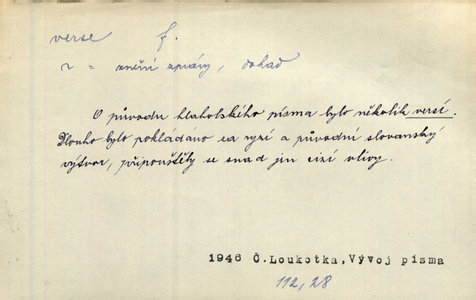 verse f.
2 = znění zprávy, dohad
O původu hlaholského písma bylo několik versí.
Dlouho bylo pokládáno za ryzí a původní slovanský
výtvor, připouštěly se snad jen cizí vlivy.
1946 Č.Loukotka,Vývoj písma
112,28